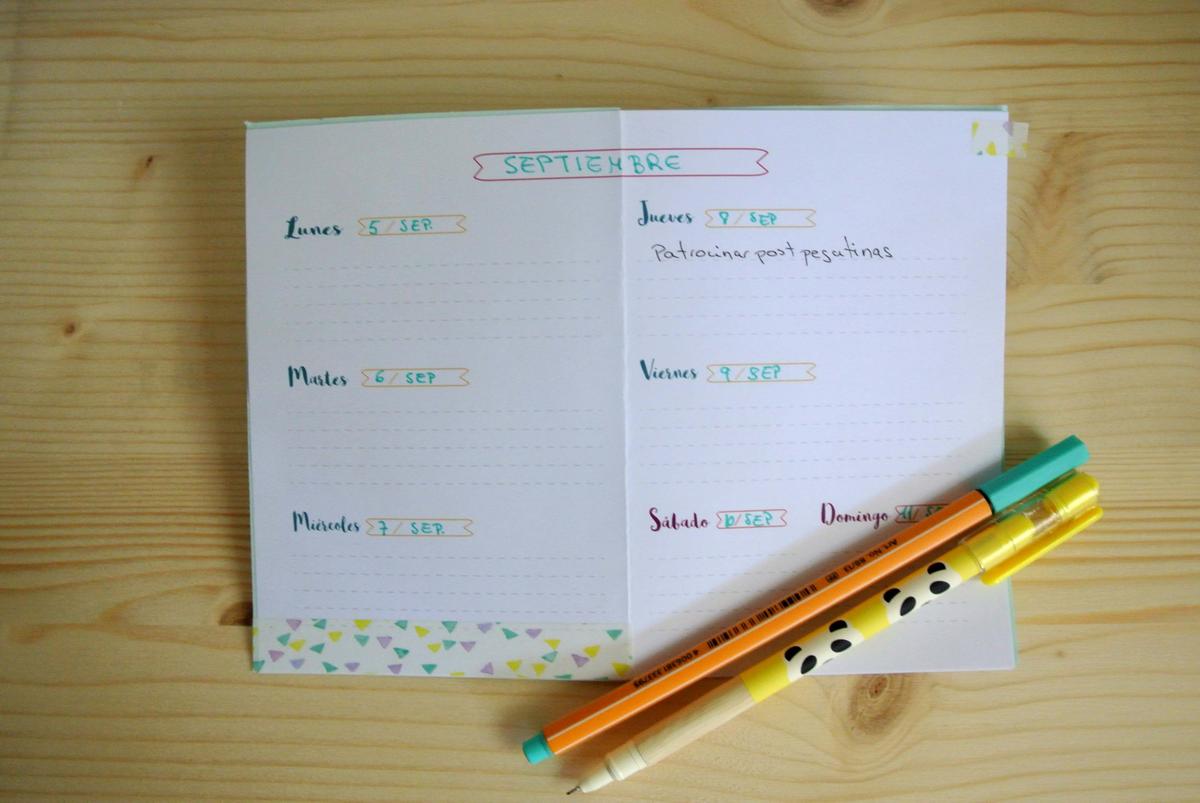 SEPTIEMBRE
Lunes 5 / SEP.
Martes 6 / SEP
Miércoles 7 / SEP.
Jueves 8 / SEP
Patrocinar post pegatinas
Viernes 9 / SEP
Sábado 10/SEP
Domingo 11/ SE
Art. No. 88/13
4 006381 333795